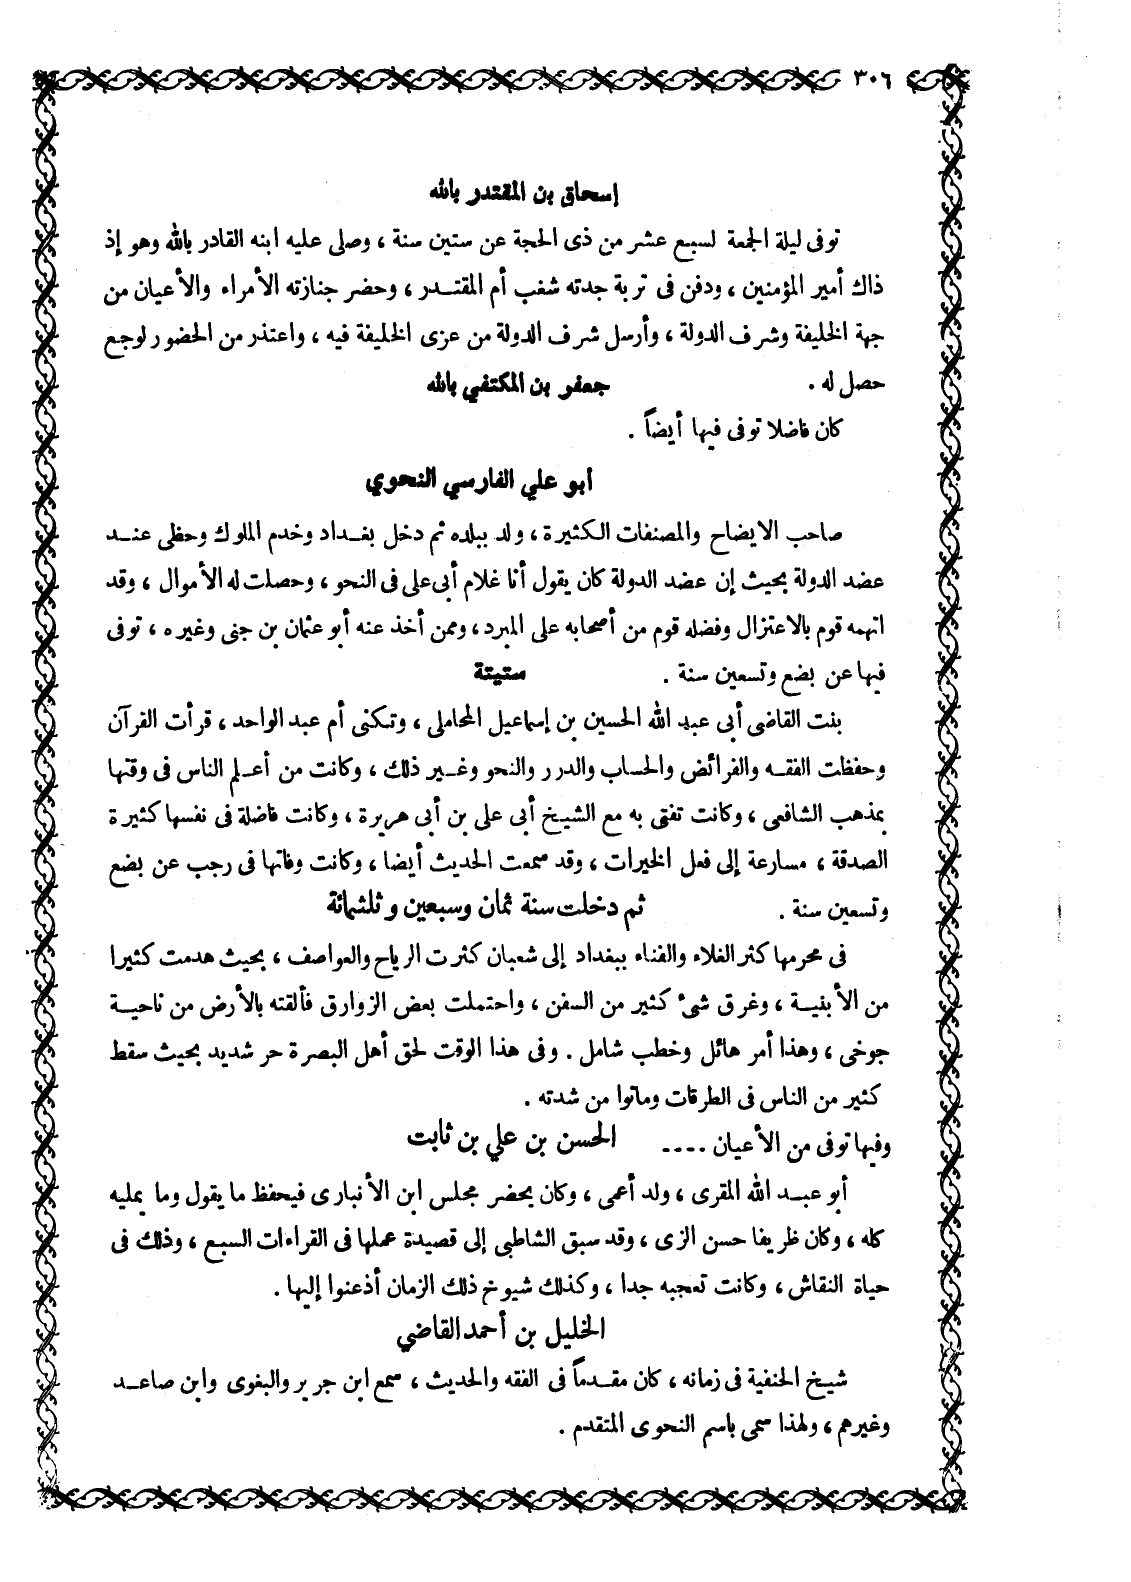 ٣٠٦
إسحاق بن المقتدر بالله
توفى ليلة الجمعة لسبع عشر من ذى الحجة عن ستين سنة ، وصلى عليه ابنه القادر بالله وهو إذ
ذاك أمير المؤمنين ، ودفن فى تربة جدته شغب أم المقتدر ، وحضر جنازته الأمراء والأعيان من
جهة الخليفة وشرف الدولة ، وأرسل شرف الدولة من عزى الخليفة فيه ، واعتذر من الحضور لوجع
حصل له . جعفر بن المكتفي بالله
كان فاضلا توفى فيها أيضاً .
أبو علي الفارسي النحوي
صاحب الايضاح والمصنفات الكثيرة ، ولد ببلده ثم دخل بغداد وخدم الملوك وحظى عند
عضد الدولة بحيث إن عضد الدولة كان يقول أنا غلام أبى على فى النحو ، وحصلت له الأموال ، وقد
اتهمه قوم بالاعتزال وفضله قوم من أصحابه على المبرد ، وممن أخذ عنه أبو عثمان بن جنى وغيره ، توفى
فيها عن بضع وتسعين سنة . ستيتة
بنت القاضى أبى عبد الله الحسين بن إسماعيل المحاملى ، وتكنى أم عبد الواحد ، قرأت القرآن
وحفظت الفقه والفرائض والحساب والدرر والنحو وغير ذلك ، وكانت من أعلم الناس فى وقتها
بمذهب الشافعى ، وكانت تفتى به مع الشيخ أبى على بن أبى هريرة ، وكانت فاضلة فى نفسها كثيرة
الصدقة ، مسارعة إلى فعل الخيرات ، وقد سمعت الحديث أيضا ، وكانت وفاتها فى رجب عن بضع
وتسعين سنة . ثم دخلت سنة ثمان وسبعين وثلثمائة
فى محرمها كثر الغلاء والفناء ببغداد إلى شعبان كثرت الرياح والعواصف ، بحيث هدمت كثيرا
من الأبنية ، وغرق شئ كثير من السفن ، واحتملت بعض الزوارق فألقته بالأرض من ناحية
جوخى ، وهذا أمر هائل وخطب شامل . وفى هذا الوقت لحق أهل البصرة حر شديد بحيث سقط
كثير من الناس فى الطرقات وماتوا من شدته .
وفيها توفى من الأعيان .... الحسن بن علي بن ثابت
أبو عبد الله المقرى ، ولد أعمى ، وكان يحضر مجلس ابن الأنبارى فيحفظ ما يقول وما يمليه
كله ، وكان ظريفا حسن الزى ، وقد سبق الشاطبى إلى قصيدة عملها فى القراءات السبع ، وذلك فى
حياة النقاش ، وكانت تعجبه جدا ، وكذلك شيوخ ذلك الزمان أذعنوا إليها .
الخليل بن أحمد القاضي
شيخ الحنفية فى زمانه ، كان مقدماً فى الفقه والحديث ، سمع ابن جرير والبغوى وابن صاعد
وغيرهم ، ولهذا سمى باسم النحوى المتقدم .